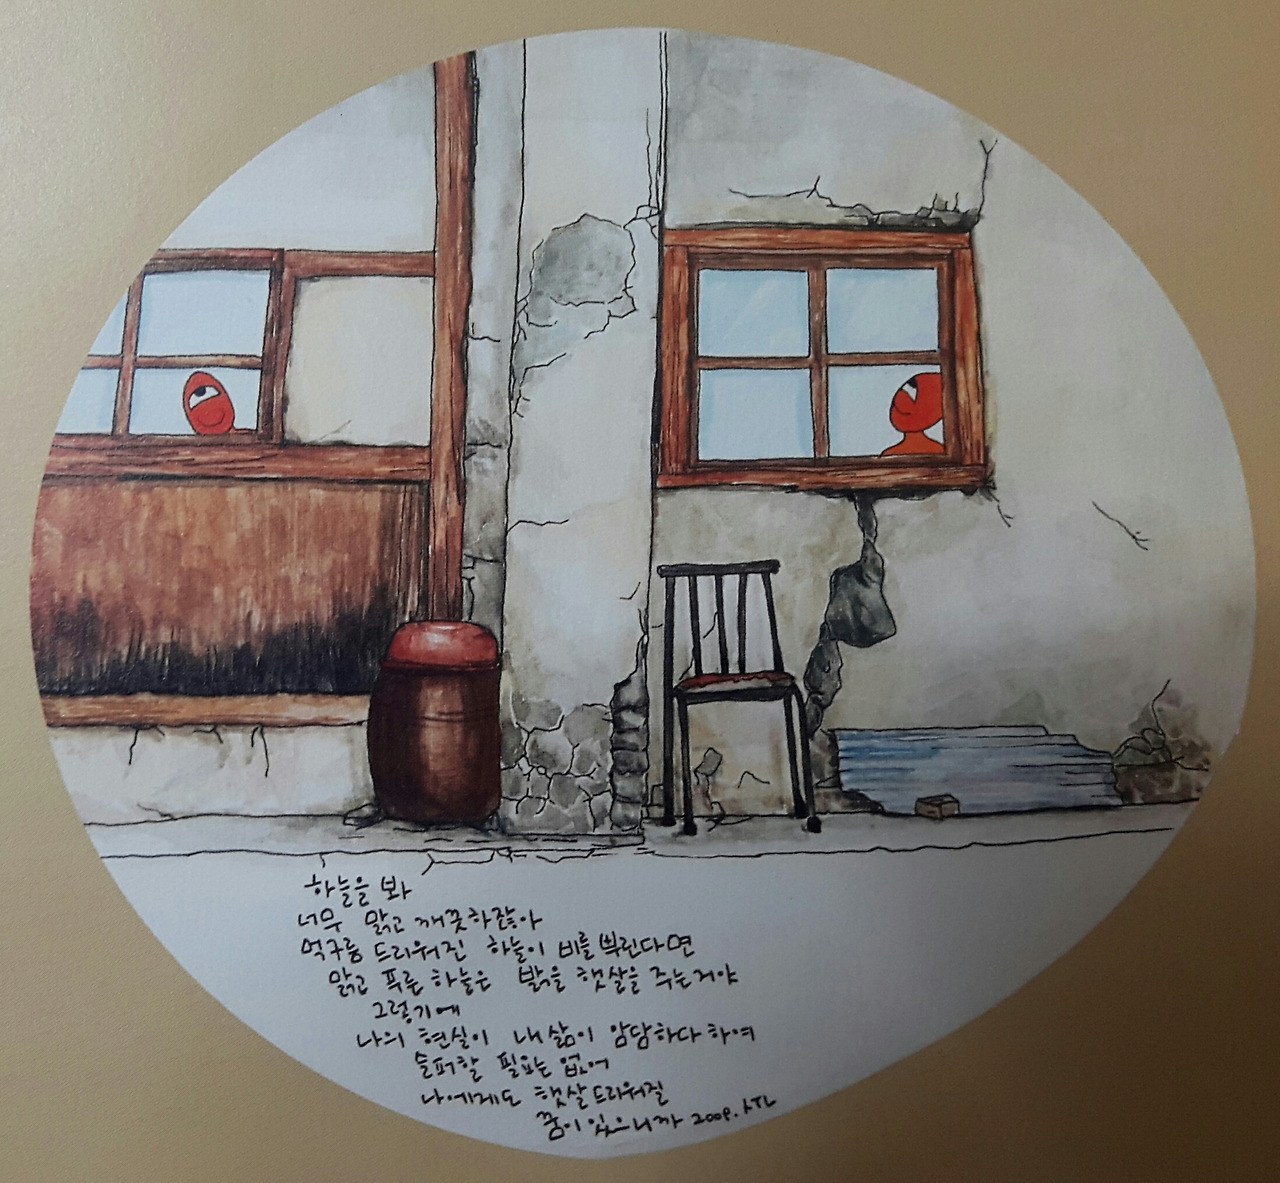 하늘을 봐
너무 맑고 깨끗하잖아
먹구름 드리워진 하늘이 비를 뿌린다면
맑고 푸른 하늘은 밝을 햇살을 주는거야
그렇기에
나의 현실이 내 삶이 암담하다 하여
슬퍼할 필요는 없어
나에게도 햇살 드리워질
꿈이 있으니까 2009.